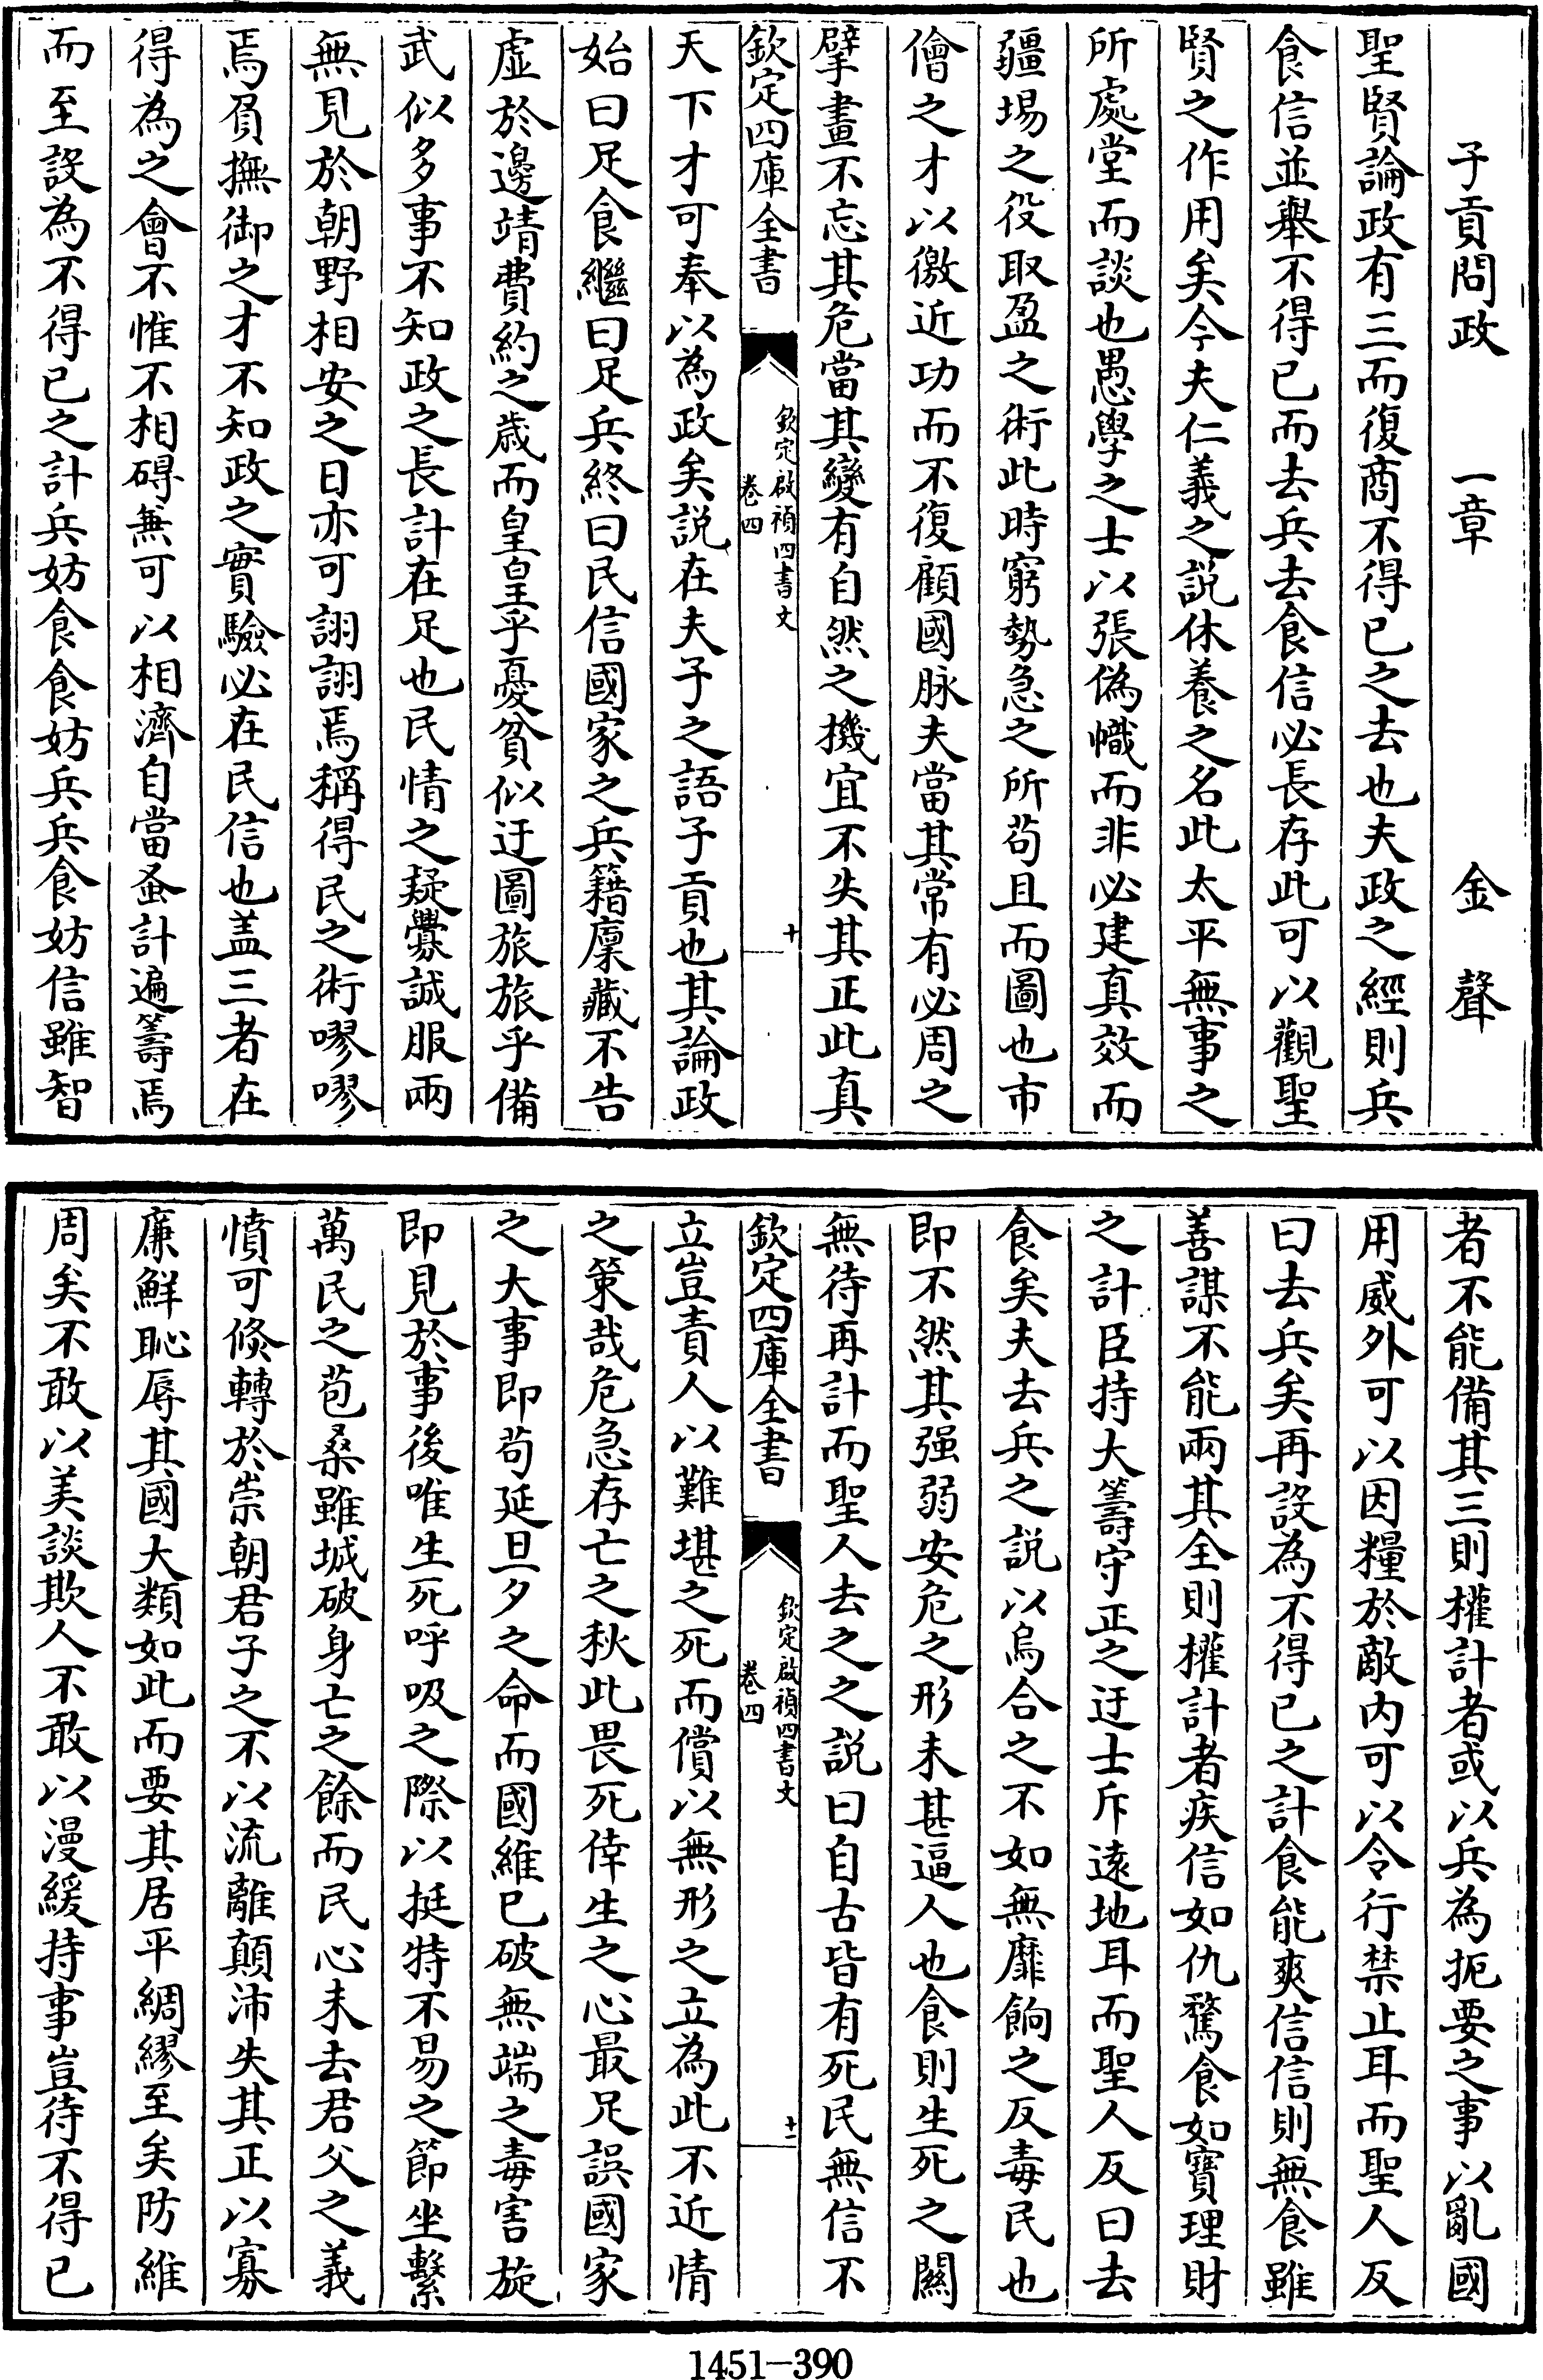 子貢問政　一章　金聲
聖賢論政有三而復商不得已之去也夫政之經則兵
食信並舉不得已而去兵去食信必長存此可以觀聖
賢之作用矣今夫仁義之説休養之名此太平無事之
所處堂而談也愚學之士以張偽幟而非必建真效而
疆埸之役取盈之術此時窮勢急之所苟且而圖也市
儈之才以徼近功而不復顧國脉夫當其常有必周之
擘畫不忘其危當其變有自然之機宜不失其正此真
欽定四庫全書
欽定啟禎四書文
卷四
十
天下才可奉以為政矣説在夫子之語子貢也其論政
始曰足食繼曰足兵終曰民信國家之兵籍廩藏不告
虛於邊靖費約之歲而皇皇乎憂貧似迂圖旅旅乎備
武似多事不知政之長計在足也民情之疑釁誠服兩
無見於朝野相安之日亦可詡詡焉稱得民之術嘐嘐
焉負撫御之才不知政之實驗必在民信也盖三者在
得為之會不惟不相碍無可以相濟自當蚤計遍籌焉
而至設為不得已之計兵妨食食妨兵兵食妨信雖智
者不能備其三則權計者或以兵為扼要之事以亂國
用威外可以因糧於敵内可以令行禁止耳而聖人反
曰去兵矣再設為不得已之計食能爽信信則無食雖
善謀不能兩其全則權計者疾信如仇騖食如寶理財
之計臣持大籌守正之迂士斥遠地耳而聖人反曰去
食矣夫去兵之説以烏合之不如無靡餉之反毒民也
即不然其强弱安危之形未甚逼人也食則生死之關
無待再計而聖人去之之説曰自古皆有死民無信不
欽定四庫全書
欽定啟禎四書文
卷四
十一
立豈責人以難堪之死而償以無形之立為此不近情
之策哉危急存亡之秋此畏死倖生之心最足誤國家
之大事即苟延旦夕之命而國維已破無端之毒害旋
即見於事後唯生死呼吸之際以挺特不易之節坐繫
萬民之苞桑雖城破身亡之餘而民心未去君父之義
憤可倏轉於崇朝君子之不以流離顛沛失其正以寡
廉鮮恥辱其國大類如此而要其居平綢繆至矣防維
周矣不敢以美談欺人不敢以漫緩持事豈待不得已
1451—390